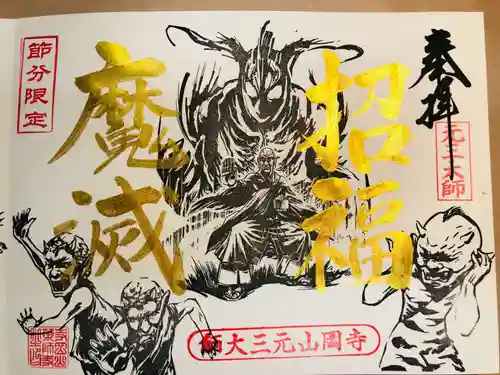 奉拝
元三大師
招福
魔滅
節分限定
寺岡山元三大師